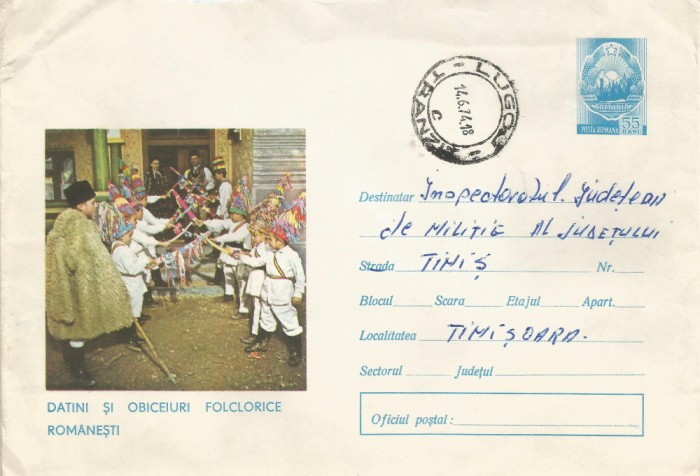 LUGOJ - TRANZIT -
14.6.74.18
C
ROMANIA
POSTA ROMANA 55 BANI
Destinatar Inspectoratul Județean
de MILIȚIE AL JUDEȚULUI
Strada TIMIȘ Nr.
Blocul Scara Etajul Apart.
Localitatea TIMIȘOARA.
Sectorul Județul
Oficiul poștal:
DATINI ȘI OBICEIURI FOLCLORICE
ROMÂNEȘTI